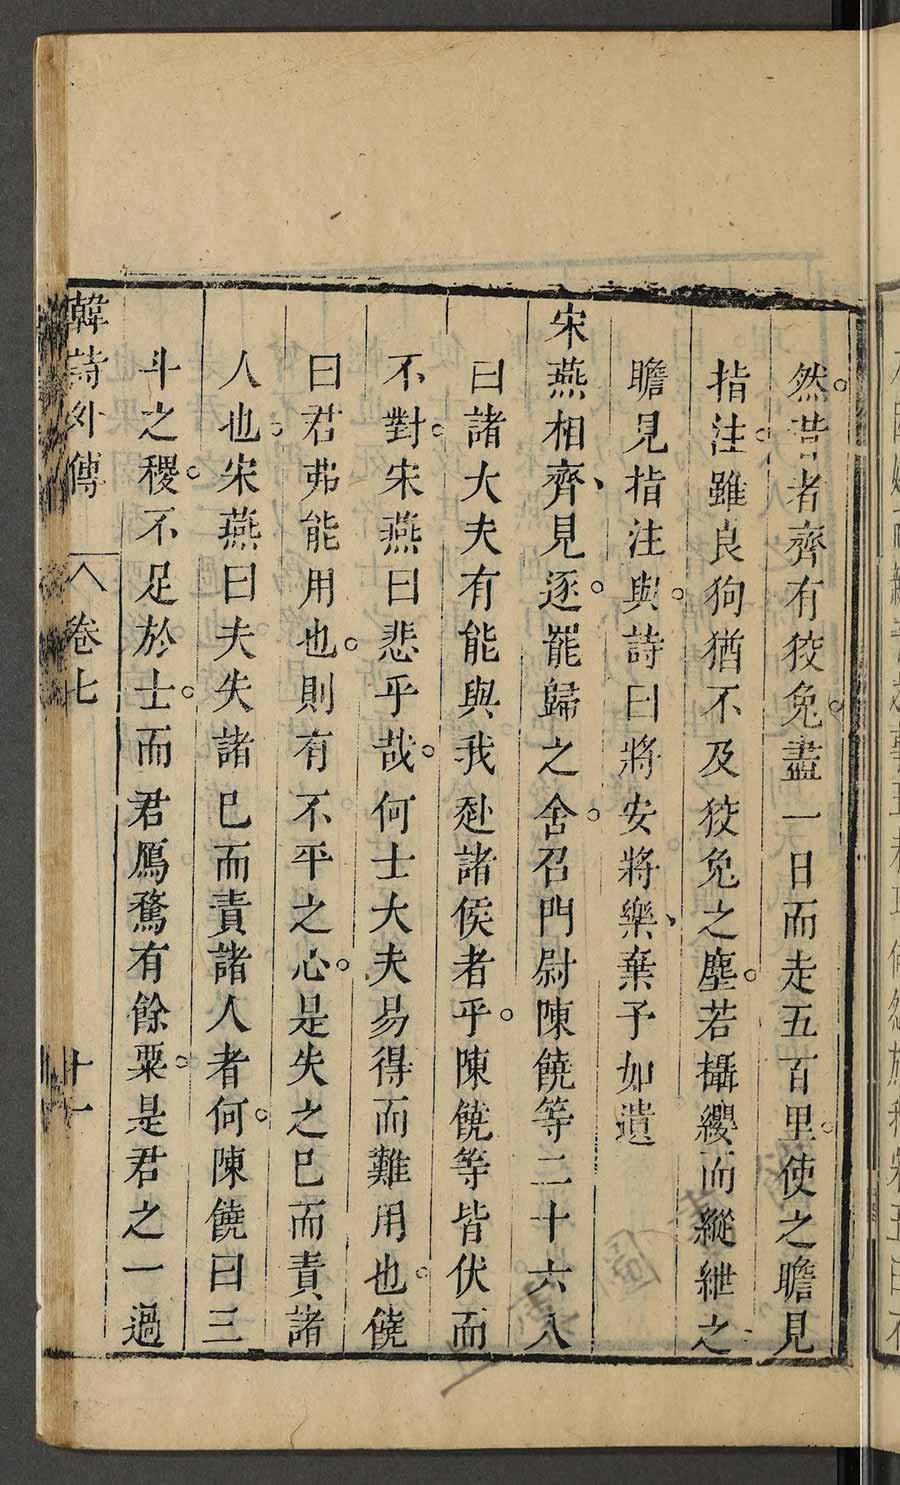 然昔者齊有狡兔盡一日而走五百里使之瞻見
指注雖良狗猶不及狡兔之塵若攝纓而縱紲之
瞻見指注與詩曰將安將樂棄予如遺
宋燕相齊見逐罷歸之舍召門尉陳饒等二十六人
曰諸大夫有能與我赴諸侯者乎陳饒等皆伏而
不對宋燕曰悲乎哉何士大夫易得而難用也饒
曰君弗能用也則有不平之心是失之已而責諸
人也宋燕曰夫失諸已而責諸人者何陳饒曰三
斗之稷不足於士而君鴈鶩有餘粟是君之一過
韓詩外傳 卷七 十一